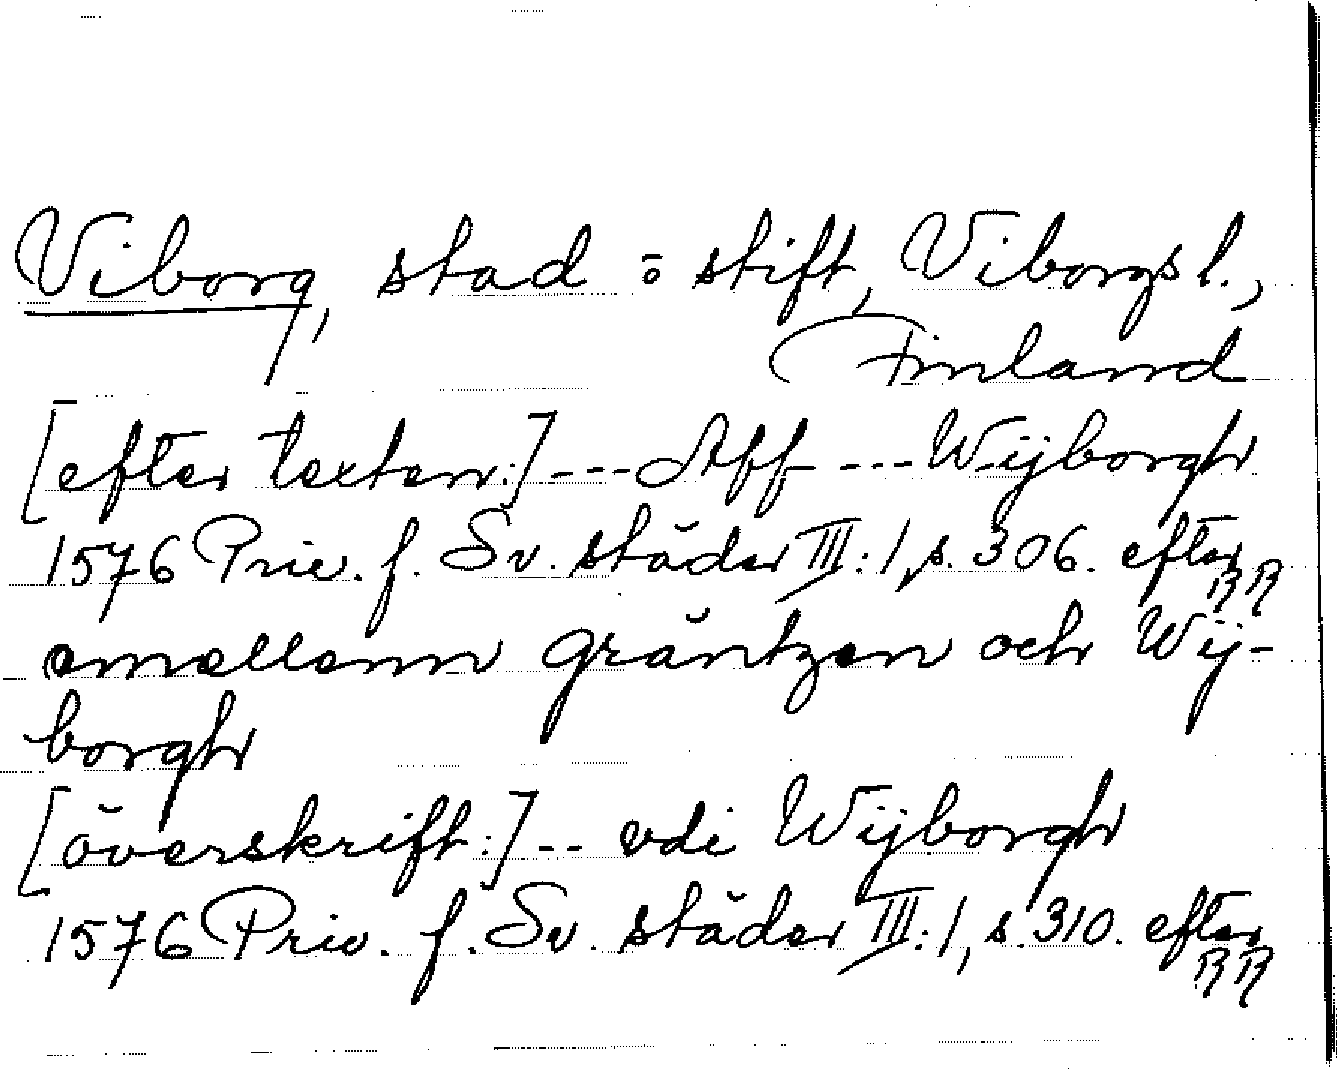 Viborg, stad o stift, Viborgs l.,
Finland
[efter texten:] --- Aff --- Wijborgh
1576 Priv. f. Sv. städer III:1, s. 306. efter RR
emellenn gräntzen och Wij-
borgh
[överskrift:] -- vdi Wijborgh
1576 Priv. f. Sv. städer III:1, s. 310. efter RR